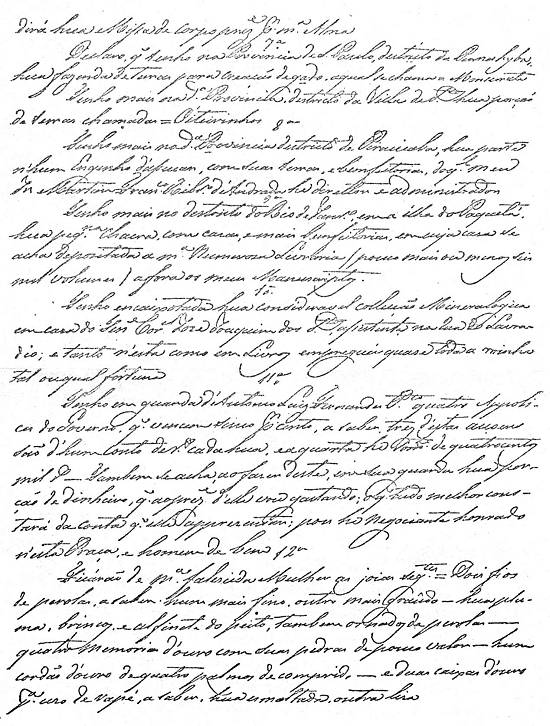 dirá huma Missa de corpo prez.e p.r m.a Alma
7.o
Declaro, q.' tenho na Provincia de S. Paulo, districto da Parnahyba,
hua fazenda de terras para creacão de gado, aqual se chama a
Tenho mais na d.a Provincia, districto da Villa de hua porção
de terras chamadas = Oiteirinhos 8.o
Tenho mais na d.a Provincia districto de Piracicaba, hua parte
n'hum Engenho d'assucar, com suas terras, e benfeitorias, do q.' meu
Martim Fran.co Rib.o d'Andrada he director e administrador
9.o
Tenho mais no districto do Rio de Jan.ro, em a ilha do Paquetá,
hua peq.a Chacra, com casa, e mais benfeitorias, em cuja casa se
acha depositada a m.a Numeroza Livraria (pouco mais ou menos seis
mil volumes) afora os meus Manuscriptos.
10.
Tenho encaixotada hua consideravel collecção Mineralogica
em casa do José Joaquim dos S.tos na rua do Lavra-
dio; e tanto n'esta como em Livros empreguei quase toda a minha
tal ou qual fortuna
11.o
Tenho em guarda d'Antonio Luiz Fernandes quatro Appoli-
ces do Governo, q.' vencem seis p.r cento, a saber, trez d'estas
são d'hum conto de r.s cada hua, e a quarta he de quatrocentos
mil r.s — Tambem se acha ao fazer d'este, em sua guarda hua por-
ção de dinheiro, q.' d'elle irei gastando; o q.' tudo melhor cons-
tará da conta q.' elle apprezentar; pois he Negociante honrado
n'esta Praça, e homem de bem 12.o
Ficarão de m.a fallecida Mulher as joias seg.tes = Dois fios
de perolas, a saber hum mais fino, outro mais — hua plu-
ma, brincos, e alfinete do peito, tambem ornado de perolas —
quatro memorias d'ouro com suas pedras de pouco valor — hum
cordão d'ouro de quatro palmos de comprid. — e duas caixas d'ouro
p.a uzo de rapé, a saber, hua esmaltada, outra liza